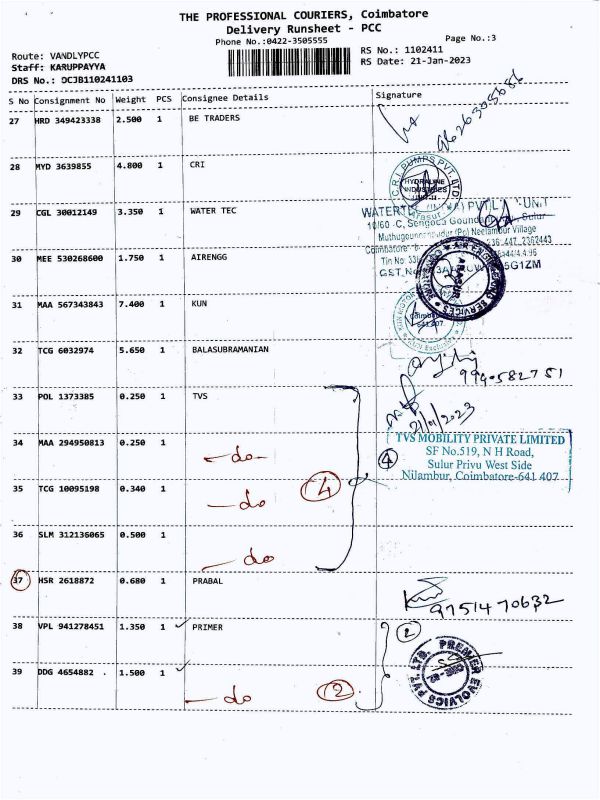 THE PROFESSIONAL COURIERS, Coimbatore
Delivery Runsheet - PCC
Phone No.:0422-3505555
Page No.:3
Route: VANDLYPCC
RS No.: 1102411
Staff: KARUPPAYYA
RS Date: 21-Jan-2023
DRS No.: DCJB110241103
S No Consignment No Weight PCS Consignee Details Signature
27 HRD 349423338 2.500 1 BE TRADERS
28 MYD 3639855 4.800 1 CRI
C.R.I. PUMPS PVT. LTD.
HYDRALINE
INDUSTRIES
UNIT-II
Arasur
29 CGL 30012149 3.350 1 WATER TEC
UNIT
10/60 -C, Sengoda Sulur
(Po) Neelambur Village
Coimbatore
30 MEE 530268600 1.750 1 AIRENGG
SERVICES
ARASUR
31 MAA 567343843 7.400 1 KUN
KUN MOTOR
Coimbatore
641 407
32 TCG 6032974 5.650 1 BALASUBRAMANIAN
33 POL 1373385 0.250 1 TVS
21/01/2023
34 MAA 294950813 0.250 1 - do -
4
TVS MOBILITY PRIVATE LIMITED
SF No.519, N H Road,
Sulur Privu West Side
Nilambur, Coimbatore-641 407
35 TCG 10095198 0.340 1 - do
4
36 SLM 312136065 0.500 1 - do
37 HSR 2618872 0.680 1 PRABAL
9751470632
38 VPL 941278451 1.350 1 PRIMER
2
PREMIER EVOLVICS PVT. LTD.
39 DDG 4654882 . 1.500 1 - do
2